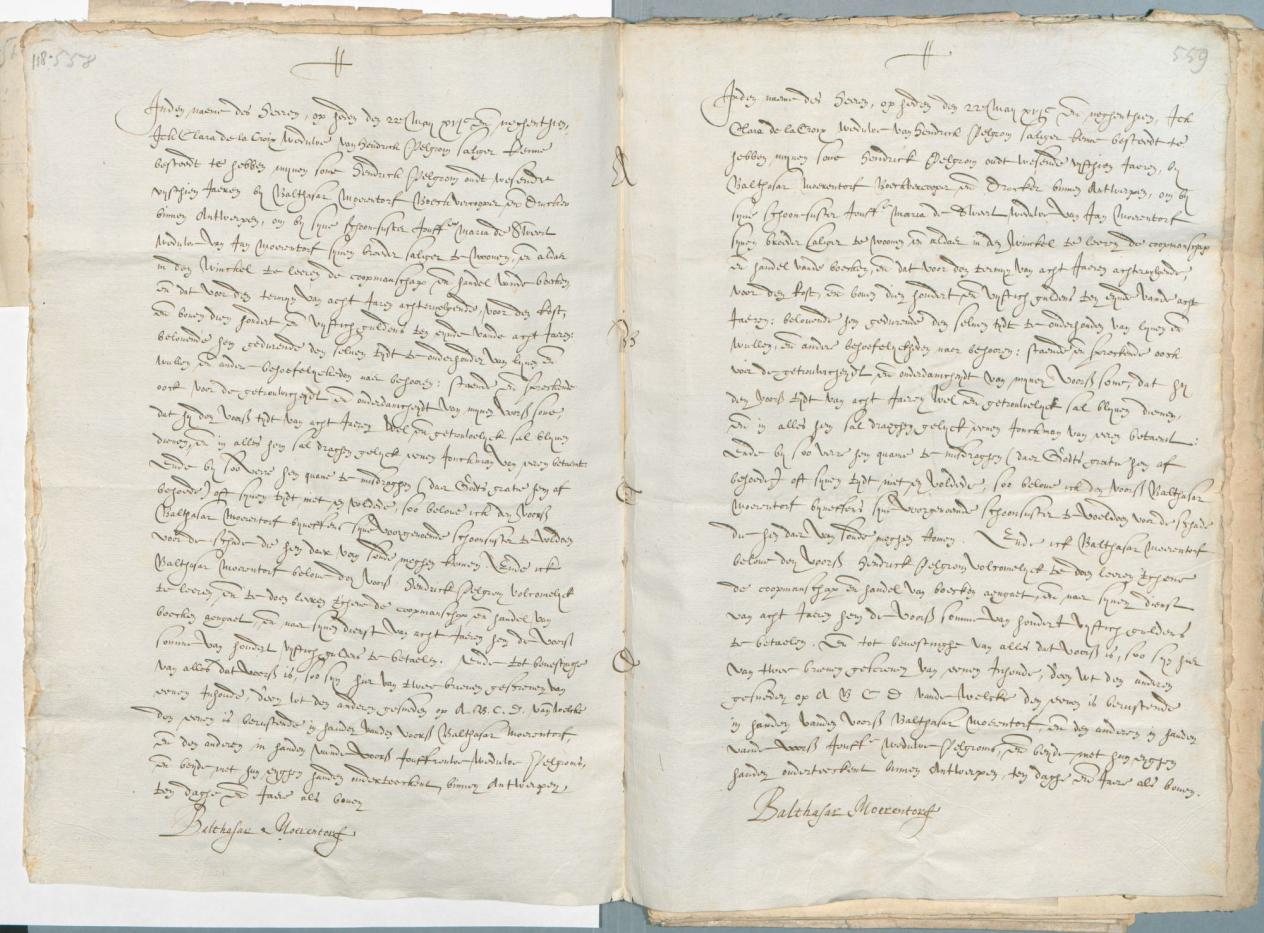 118. 558
Inden naeme des Heeren, op heden den 22en May xvjC en neghenthien,
Ick Clara de la Croix weduwe van Hendrick Pelgrom saliger kenne
besteedt te hebben mijnen sone Hendrick Pelgrom oudt wesende
vijfthien Jaeren by Balthasar Moerentorf Boeckvercooper en Drucker
binnen Antwerpen, om by sijne schoonsuster Jouffe Maria de Sweert
weduwe van Jan Moerentorf sijnen broeder saliger te woonen, en aldaer
in den Winckel te leeren de coopmanschap en handel vande boecken
en dat voor den termijn van acht Jaren achtervolgende, voor den kost,
en boven dien hondert en vijftich guldens ten eynde vande acht Jaeren:
belovende hem gedurende den selven tijdt te onderhouden van lijnen en
wullen en andere behoefelyckheden naer behooren: staende en sprekende
oock voor de getrouwicheydt en onderdanicheydt van mijnen voorß sone
dat hy den voorß tijdt van acht Jaeren wel en getrouwelyck sal blijven
dienen, en in alles hem sal draghen gelyck eenen Jonckman van eeren betaemt
Ende by soo verre hem quame te misdraghen (daer Godts gratie hem af
behoede) oft sijnen tijdt niet en voldede, soo belove ick den voorß
Balthasar Moerentorf byneffens sijne voorgenoemde schoonsuster te voldoen
voor de schade die hem daer van soude moghen komen. Ende ick
Balthasar Moerentorf belove den voorß Hendrick Pelgrom volcomelyck
te leeren, en te doen leeren tghene de coopmanschap en handel van
boecken aengaet, en naer sijnen dienst van acht Jaeren hem de voorß
somme van hondert vijftich guldens te betaelen. Ende tot bevestinge
van alles dat voorß is, soo sijn hier van twee brieven geschreven van
eenen Inhoude, deen wt den anderen gesneden op A. B. C. D. van welcke
den eenen is berustende in handen vanden voorß Balthasar Moerentorf,
en den anderen in handen vande voorß Jouffrouwe weduwe Pelgroms,
en beyde met hun eyghen handen onderteeckent, binnen Antwerpen
ten daghe en Jaere als boven
Balthasar Moerentorf
A
B
C
D
559
Inden naeme des Heeren, op heden den 22en May xvjC en neghenthien, Ick
Clara de la Croix weduwe van Hendrick Pelgrom saliger kenne besteedt te
hebben mijnen sone Hendrick Pelgrom oudt wesende vijfthien Jaeren, by
Balthasar Moerentorf Boeckvercooper en Drucker binnen Antwerpen, om by
sijne schoonsuster Jouffe Maria de Sweert weduwe van Jan Moerentorf
sijnen broeder saliger te woonen, en aldaer in den Winckel te leeren de coopmanschap
en handel vande boecken, en dat voor den termijn van acht Jaeren achtervolgende,
voor den kost, en boven dien hondert en vijftich guldens ten eynde vande acht
Jaeren: belovende hem gedurende den selven tijdt te onderhouden van lijnen en
wullen, en andere behoefelyckheden naer behooren: staende en sprekende oock
voor de getrouwicheydt en onderdanicheydt van mijnen voorß sone, dat hy
den voorß tijdt van acht Jaeren wel en getrouwelyck sal blijven dienen,
en in alles hem sal draghen gelyck eenen Jonckman van eeren betaemt:
Ende by soo verre hem quame te misdraghen (daer Godts gratie hem af
behoede) oft sijnen tijdt niet en voldede, soo belove ick den voorß Balthasar
Moerentorf byneffens sijne voorgenoemde schoonsuster te voldoen voor de schade
die hem daer van soude moghen komen. Ende ick Balthasar Moerentorf
belove den voorß Hendrick Pelgrom volcomelyck te doen leeren tghene
de coopmanschap en handel van boecken aengaet, en naer sijnen dienst
van acht Jaeren hem de voorß somme van hondert vijftich guldens
te betaelen. En tot bevestinghe van alles dat voorß is, soo sijn hier
van twee brieven geschreven van eenen Inhoude, deen wt den anderen
gesneden op A B C D vande welcke den eenen is berustende
in handen vanden voorß Balthasar Moerentorf, en den anderen in handen
vande voorß Jouffe weduwe Pelgroms, en beyde met hun eyghen
handen onderteeckent binnen Antwerpen, ten daghe en Jaere als boven.
Balthasar Moerentorf